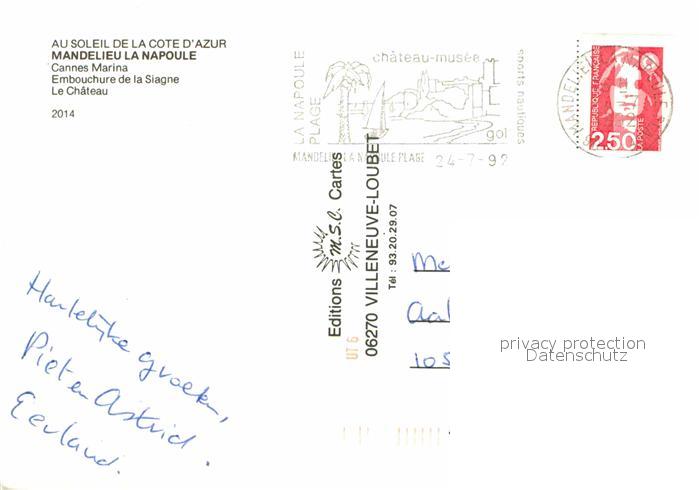 AU SOLEIL DE LA COTE D'AZUR
MANDELIEU LA NAPOULE
Cannes Marina
Embouchure de la Siagne
Le Château
2014
LA NAPOULE
PLAGE
château-musée
sports nautiques
golf
MANDELIEU-LA NAPOULE PLAGE
24-7-92
MANDELIEU
REPUBLIQUE FRANÇAISE
LA POSTE
2,50
Editions M.S.C. Cartes
06270 VILLENEUVE-LOUBET
Tél : 93.20.29.07
UT 6
Me
Aal
105
privacy protection
Datenschutz
Hartelijke groeten,
Piet en Astrid